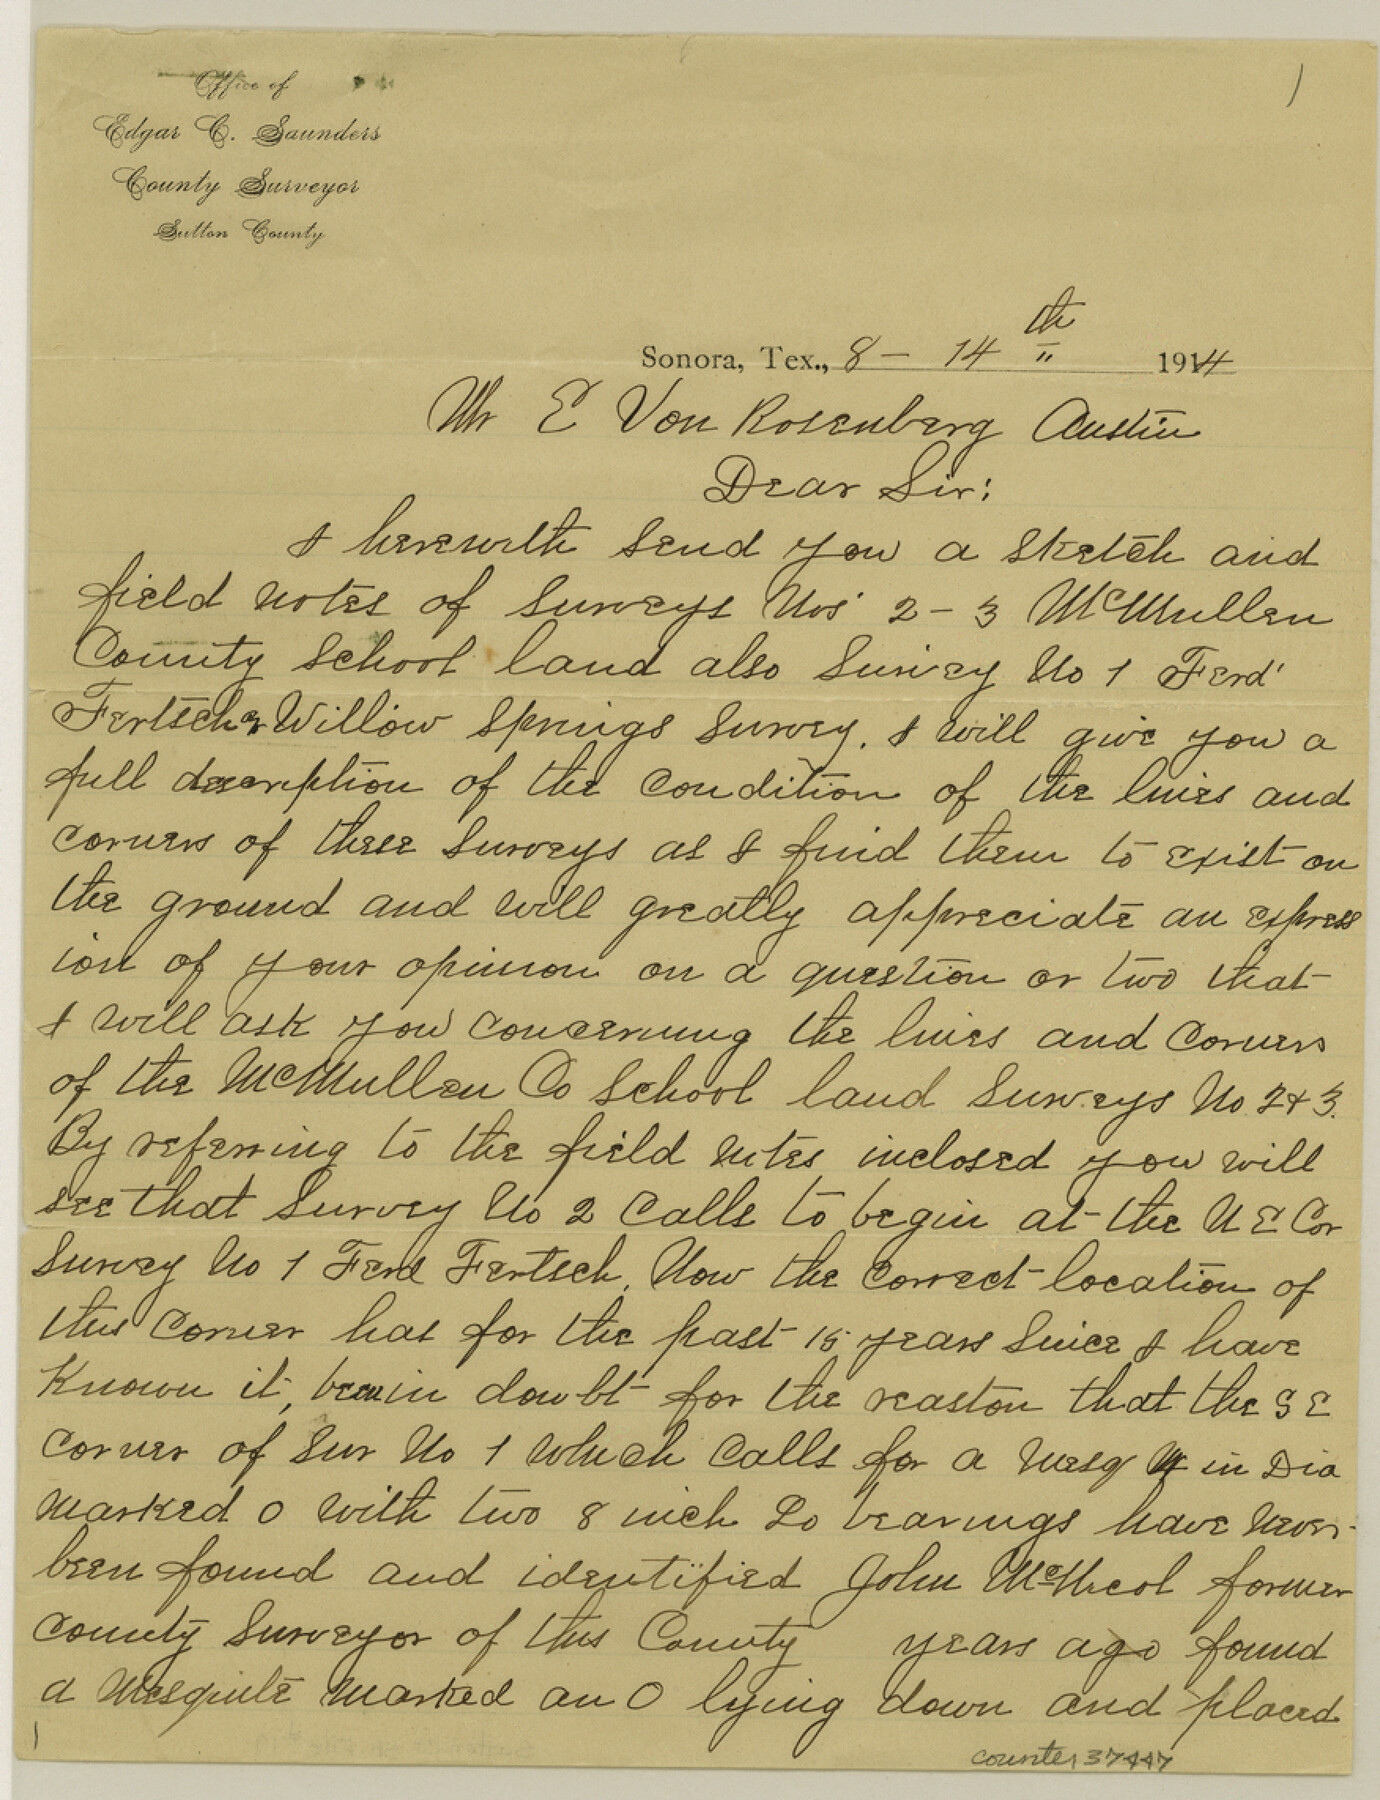 1
Office of
Edgar C. Saunders
County Surveyor
Sutton County
Sonora, Tex., 8 - 14 th 1914
Mr E Von Rosenberg Austin
Dear Sir:
I herewith send you a sketch and
field notes of Surveys Nos 2 - 3 McMullen
County School land also Survey No 1 Ferd'
Fertsch & Willow Springs Survey. I will give you a
full description of the condition of the lines and
corners of these Surveys as I find them to exist on
the ground and will greatly appreciate an express
ion of your opinion on a question or two that
I will ask you concerning the lines and corners
of the McMullen Co School land Surveys No 2 & 3.
By referring to the field notes inclosed you will
see that Survey No 2 calls to begin at the N E Cor
Survey No 1 Ferd Fertsch. Now the correct location of
this corner has for the past 15 years since I have
known it, been in doubt for the reaston that the S E
corner of Sur No 1 which calls for a Mesq 4 in Dia
marked O with two 8 inch Lo bearings have never
been found and identified John McNicol former
county Surveyor of this County years ago found
a Mesquite marked an O lying down and placed
counter 37447